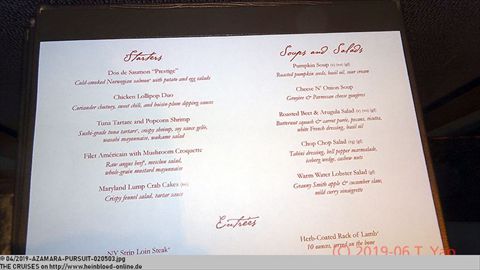 Starters
Dos de Saumon "Prestige"
Cold-smoked Norwegian salmon* with potato and egg salads
Chicken Lollipop Duo
Coriander chutney, sweet chili, and hoisin-plum dipping sauces
Tuna Tartare and Popcorn Shrimp
Sushi-grade tuna tartare*, crispy shrimp, soy sauce gelée,
wasabi mayonnaise, wakame salad
Filet Américain with Mushroom Croquette
Raw angus beef*, mesclun salad,
whole-grain mustard mayonnaise
Maryland Lump Crab Cakes
Crispy fennel salad, tartar sauce
Soups and Salads
Pumpkin Soup
Roasted pumpkin seeds, basil oil, sour cream
Cheese N' Onion Soup
Gruyère & Parmesan cheese gougères
Roasted Beet & Arugula Salad
Butternut squash & carrot purée, pecans, ricotta,
white French dressing, basil oil
Chop Chop Salad
Tahini dressing, bell pepper marmalade,
iceberg wedge, cashew nuts
Warm Water Lobster Salad
Granny Smith apple & cucumber slaw,
mild curry vinaigrette
Entrées
NY Strip Loin Steak*
Herb-Coated Rack of Lamb*
10 ounces, served on the bone
(C) 2019-06 T. Yao
© 04/2019-AZAMARA-PURSUIT-020503.jpg
THE CRUISES on http://www.heinbloed-online.de